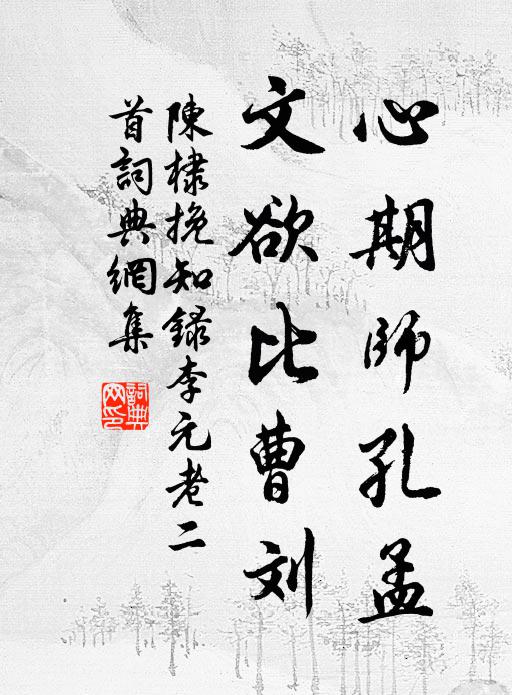 心期師孔孟
文欲比曹刘
陳棣挽知錄李元老二
首詞典網集
詞典網印